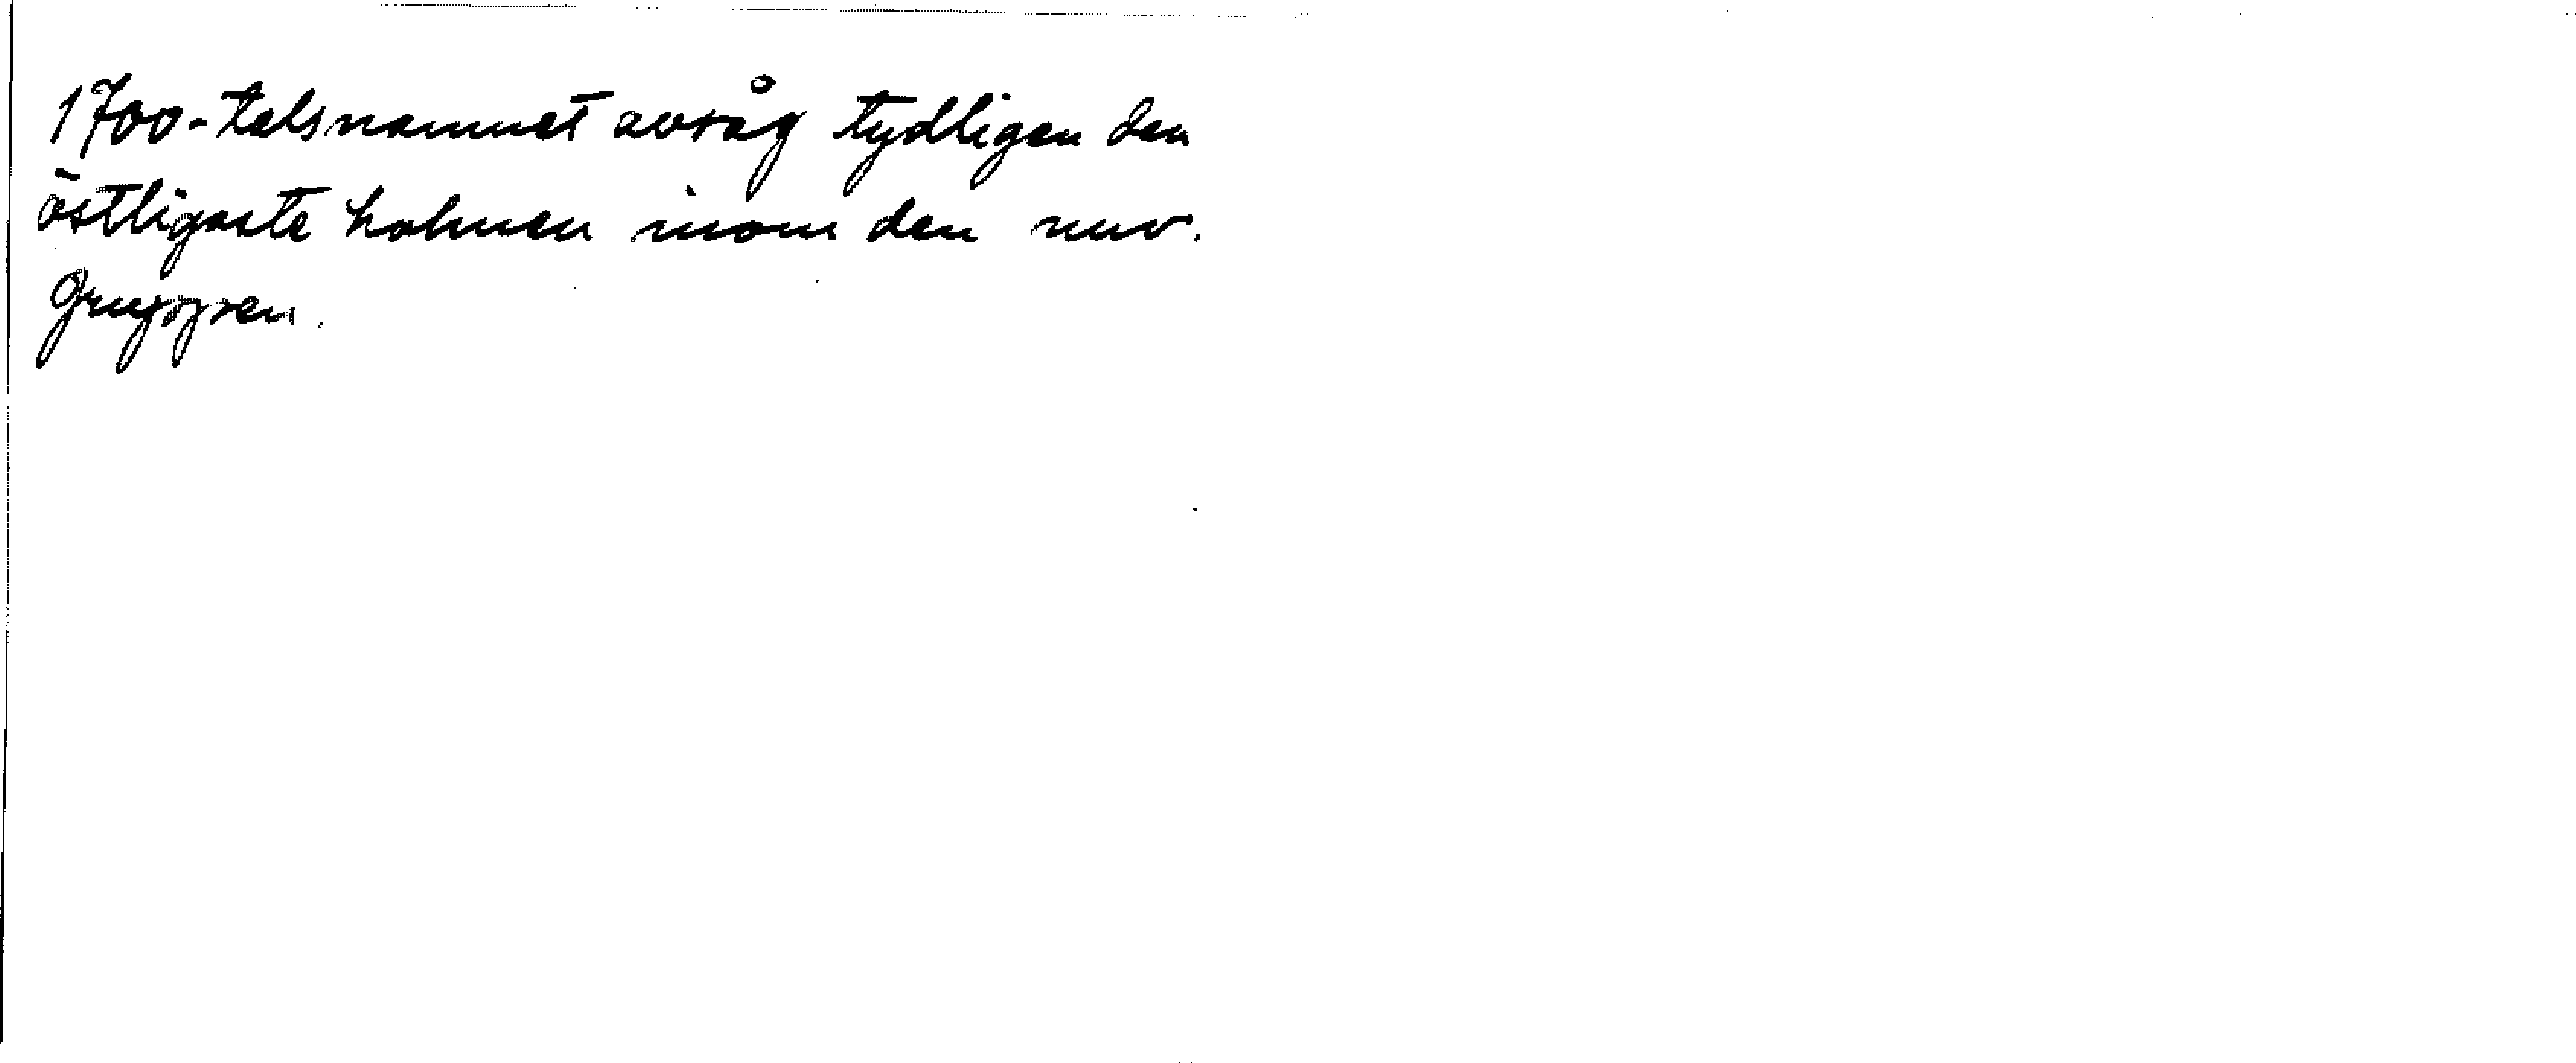 1700-talsnamnet avsåg tydligen den
östligaste holmen inom den nuv.
gruppen.